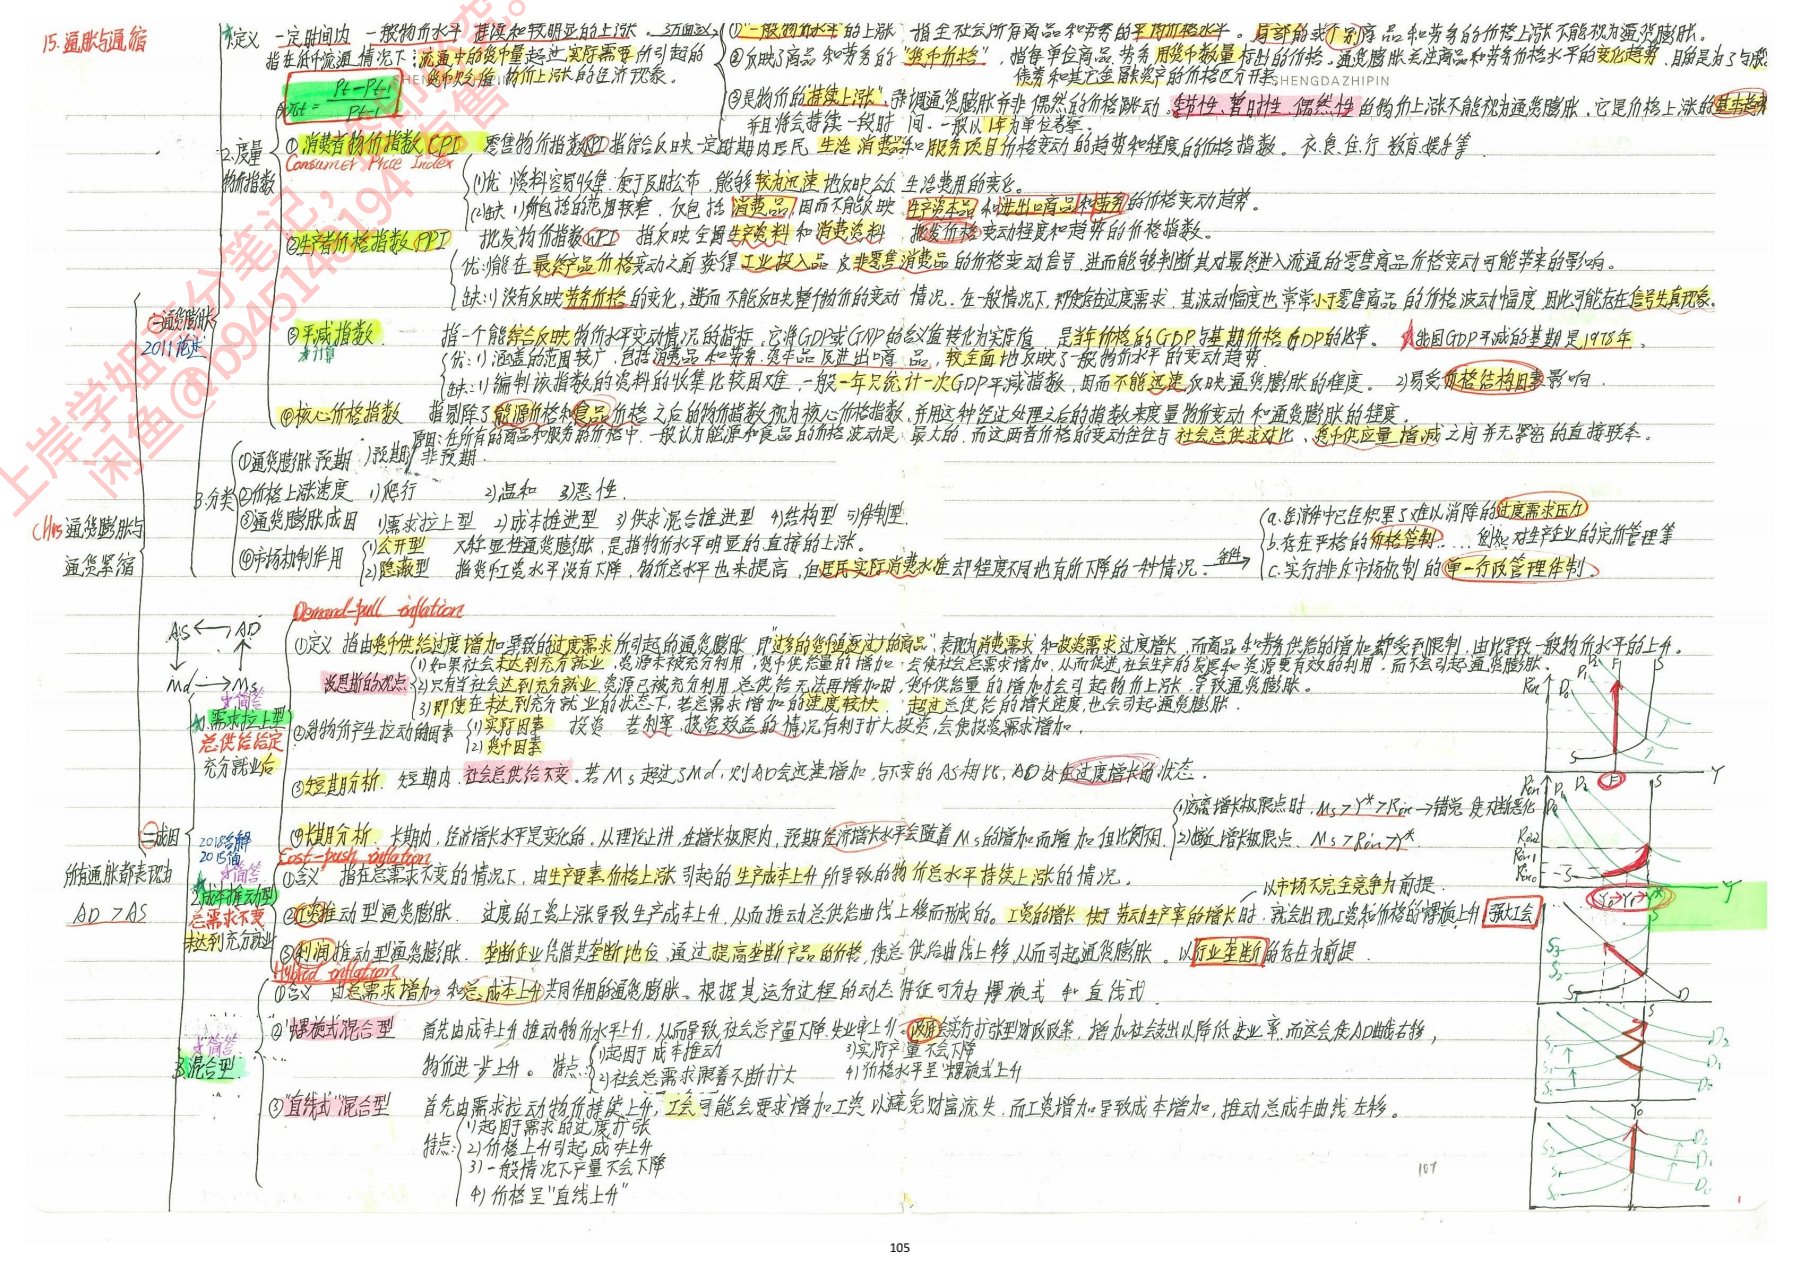 15.通胀与通缩
1.定义 一定时间内 一般物价水平 持续和较明显的上涨
指在纸币流通情况下:流通中的货币量超过实际需要所引起的
货币贬值、物价上涨的经济现象。
πt = (Pt-Pt-1)/Pt-1
①"一般物价水平"的上涨 指全社会所有商品和劳务的平均价格水平。局部的或个别商品和劳务的价格上涨不能视为通货膨胀。
②反映了商品和劳务的"货币价格",指每单位商品、劳务用货币数量标出的价格。通货膨胀关注商品和劳务价格水平的变化趋势,目的是为了与股
债券和其它金融资产的价格区分开来
③是物价的"持续上涨",强调通货膨胀并非偶然的价格跳动.季节性、暂时性、偶然性的物价上涨不能视为通货膨胀,它是价格上涨的基本趋势
并且将会持续一段时间.一般以1年为单位考察.
SHENGDAZHIPIN
SHENGDAZHIPIN
2.度量
物价指数
①消费者物价指数CPI 零售物价指数RPI指综合反映一定时期内居民 生活消费品和服务项目价格变动的趋势和程度的价格指数。衣、食、住、行、教育、娱乐等
Consumer Price Index
(1)优 1)资料容易收集、便于及时公布,能够较为迅速地反映公众生活费用的变化。
(2)缺 1)所包括的范围较窄,仅包括消费品,因而不能反映生产资本品和进出口商品和劳务的价格变动趋势。
②生产者价格指数PPI 批发物价指数WPI 指反映全国生产资料和消费资料批发价格变动程度和趋势的价格指数。
优:1)能在最终产品价格变动之前获得工业投入品及非零售消费品的价格变动信号,进而能够判断其对最终进入流通的零售商品价格变动可能带来的影响。
缺:1)没有反映劳务价格的变化,进而不能反映整个物价的变动情况.在一般情况下,即使存在过度需求,其波动幅度也常常小于零售商品的价格波动幅度,因此可能存在信号失真现象。
③平减指数 指一个能综合反映物价水平变动情况的指标,它将GDP或GNP的名义值转化为实际值,是当年价格的GDP与基期价格的GDP的比率。 ★我国GDP平减的基期是1978年。
★计算
优:1)涵盖的范围较广,包括消费品和劳务、资本品及进出口商品,较全面地反映了一般物价水平的变动趋势.
缺:1)编制该指数的资料的收集比较困难,一般一年只统计一次GDP平减指数,因而不能迅速反映通货膨胀的程度。 2)易受价格结构因素影响.
④核心价格指数 指剔除了能源价格和食品价格之后的物价指数视为核心价格指数,并用这种经过处理之后的指数来度量物价变动和通货膨胀的程度。
原因:在所有的商品和服务的价格中,一般认为能源和食品的价格波动是最大的,而这两者价格的变动往往与社会总供求对比、货币供应量增减之间并无紧密的直接联系。
一.通货膨胀
2011论述
3.分类
①通货膨胀预期 预期 非预期
②价格上涨速度 1)爬行 2)温和 3)恶性.
③通货膨胀成因 1)需求拉上型 2)成本推进型 3)供求混合推进型 4)结构型 5)体制型.
④市场机制作用
1)公开型 又称显性通货膨胀,是指物价水平明显的、直接的上涨。
2)隐蔽型 指货币工资水平没有下降,物价总水平也未提高,但居民实际消费水准却程度不同地有所下降的一种情况。 条件
a.经济体中已经积累了难以消除的过度需求压力
b.存在严格的价格管制......例如对生产企业的定价管理等
c.实行排斥市场机制的单一行政管理体制.
CH15 通货膨胀与
通货紧缩
AS←AD
Md→Ms
Demand-pull inflation
①定义 指由货币供给过度增加导致的过度需求所引起的通货膨胀,即"过多的货币追逐过少的商品",表现为消费需求和投资需求过度增长,而商品和劳务供给的增加却受到限制,由此导致一般物价水平的上升。
凯恩斯的观点
1)如果社会未达到充分就业,资源未被充分利用,货币供给量的增加会使社会总需求增加,从而促进社会生产的发展和资源更有效的利用,而不会引起通货膨胀.
2)只有当社会达到充分就业,资源已被充分利用,总供给无法再增加时,货币供给量的增加才会引起物价上涨,导致通货膨胀。
3)即使在未达到充分就业的状态下,若总需求增加的速度较快,超过总供给的增长速度,也会引起通货膨胀.
★简答
1.需求拉上型
总供给给定
充分就业后
②对物价产生拉动的因素 1)实际因素 投资 若利率、投资效益的情况有利于扩大投资,会使投资需求增加.
2)货币因素
③短期分析 短期内,社会总供给不变。若Ms超过Md,则AD会迅速增加,与不变的AS相比,AD处在过度增长的状态.
④长期分析 长期内,经济增长水平是变化的。从理论上讲,在增长极限内,预期经济增长水平会随着Ms的增加而增加,但比例不同.
2)接近增长极限点.
二.成因
所有通胀都表现为
AD>AS
2018名解
2015简
★简答
2.成本推动型
总需求不变
未达到充分就业
Cost-push inflation
①含义 指在总需求不变的情况下,由生产要素价格上涨引起的生产成本上升所导致的物价总水平持续上涨的情况。
以市场不完全竞争为前提.
②工资推动型通货膨胀. 过度的工资上涨导致生产成本上升,从而推动总供给曲线上移而形成的。工资的增长快于劳动生产率的增长时,就会出现工资和价格的螺旋上升 强大工会
③利润推动型通货膨胀. 垄断企业凭借其垄断地位,通过提高垄断产品的价格,使总供给曲线上移,从而引起通货膨胀。以行业垄断的存在为前提.
Hybrid inflation
★简答
3.混合型
①含义 由总需求增加和总成本上升共同作用的通货膨胀。根据其运行过程的动态特征可分为螺旋式和直线式
②"螺旋式"混合型 首先由成本上升推动物价水平上升,从而导致社会总产量下降,失业率上升.政府会实行扩张型财政政策,增加社会支出以降低失业率,而这会使AD曲线右移,
物价进一步上升。 特点: 1)起因于成本推动 3)实际产量不会下降
2)社会总需求跟着不断扩大 4)价格水平呈"螺旋式"上升
③"直线式"混合型 首先由需求拉动物价持续上升,工会可能会要求增加工资以避免财富流失,而工资增加导致成本增加,推动总成本曲线左移。
特点: 1)起因于需求的过度扩张
2)价格上升引起成本上升
3)一般情况下产量不会下降
4)价格呈"直线上升"
107
105
上岸学姐高分笔记,
闲鱼@b945148194有售